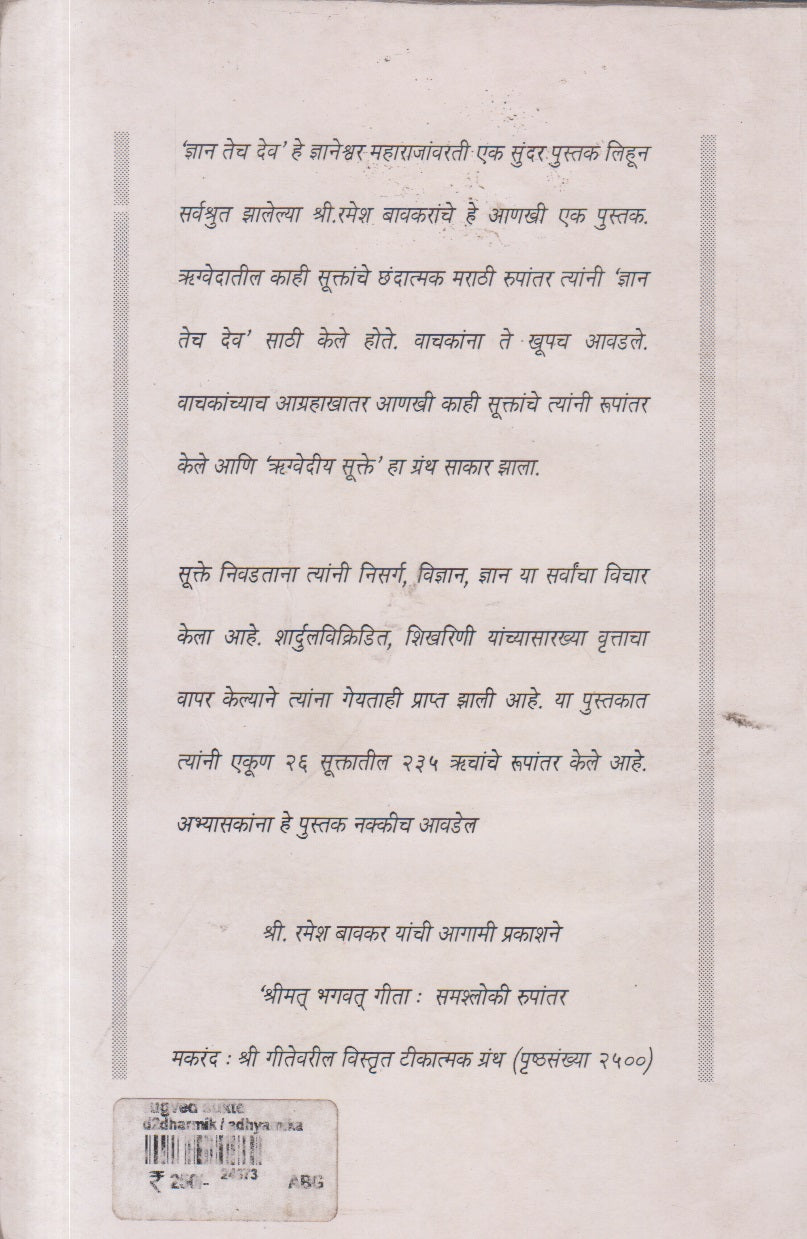 ‘ज्ञान तेच देव’ हे ज्ञानेश्वर महाराजांवरती एक सुंदर पुस्तक लिहून
सर्वश्रुत झालेल्या श्री.रमेश बावकरांचे हे आणखी एक पुस्तक.
ऋग्वेदातील काही सूक्तांचे छंदात्मक मराठी रुपांतर त्यांनी ‘ज्ञान
तेच देव’ साठी केले होते. वाचकांना ते खूपच आवडले.
वाचकांच्याच आग्रहाखातर आणखी काही सूक्तांचे त्यांनी रूपांतर
केले आणि ‘ऋग्वेदीय सूक्ते’ हा ग्रंथ साकार झाला.
सूक्ते निवडताना त्यांनी निसर्ग, विज्ञान, ज्ञान या सर्वांचा विचार
केला आहे. शार्दुलविक्रिडित, शिखरिणी यांच्यासारख्या वृत्ताचा
वापर केल्याने त्यांना गेयताही प्राप्त झाली आहे. या पुस्तकात
त्यांनी एकूण २६ सूक्तातील २३५ ऋचांचे रूपांतर केले आहे.
अभ्यासकांना हे पुस्तक नक्कीच आवडेल
श्री. रमेश बावकर यांची आगामी प्रकाशने
‘श्रीमत् भगवत् गीता : समश्लोकी रुपांतर
मकरंद : श्री गीतेवरील विस्तृत टीकात्मक ग्रंथ (पृष्ठसंख्या २५००)
₹ 250/- ABG